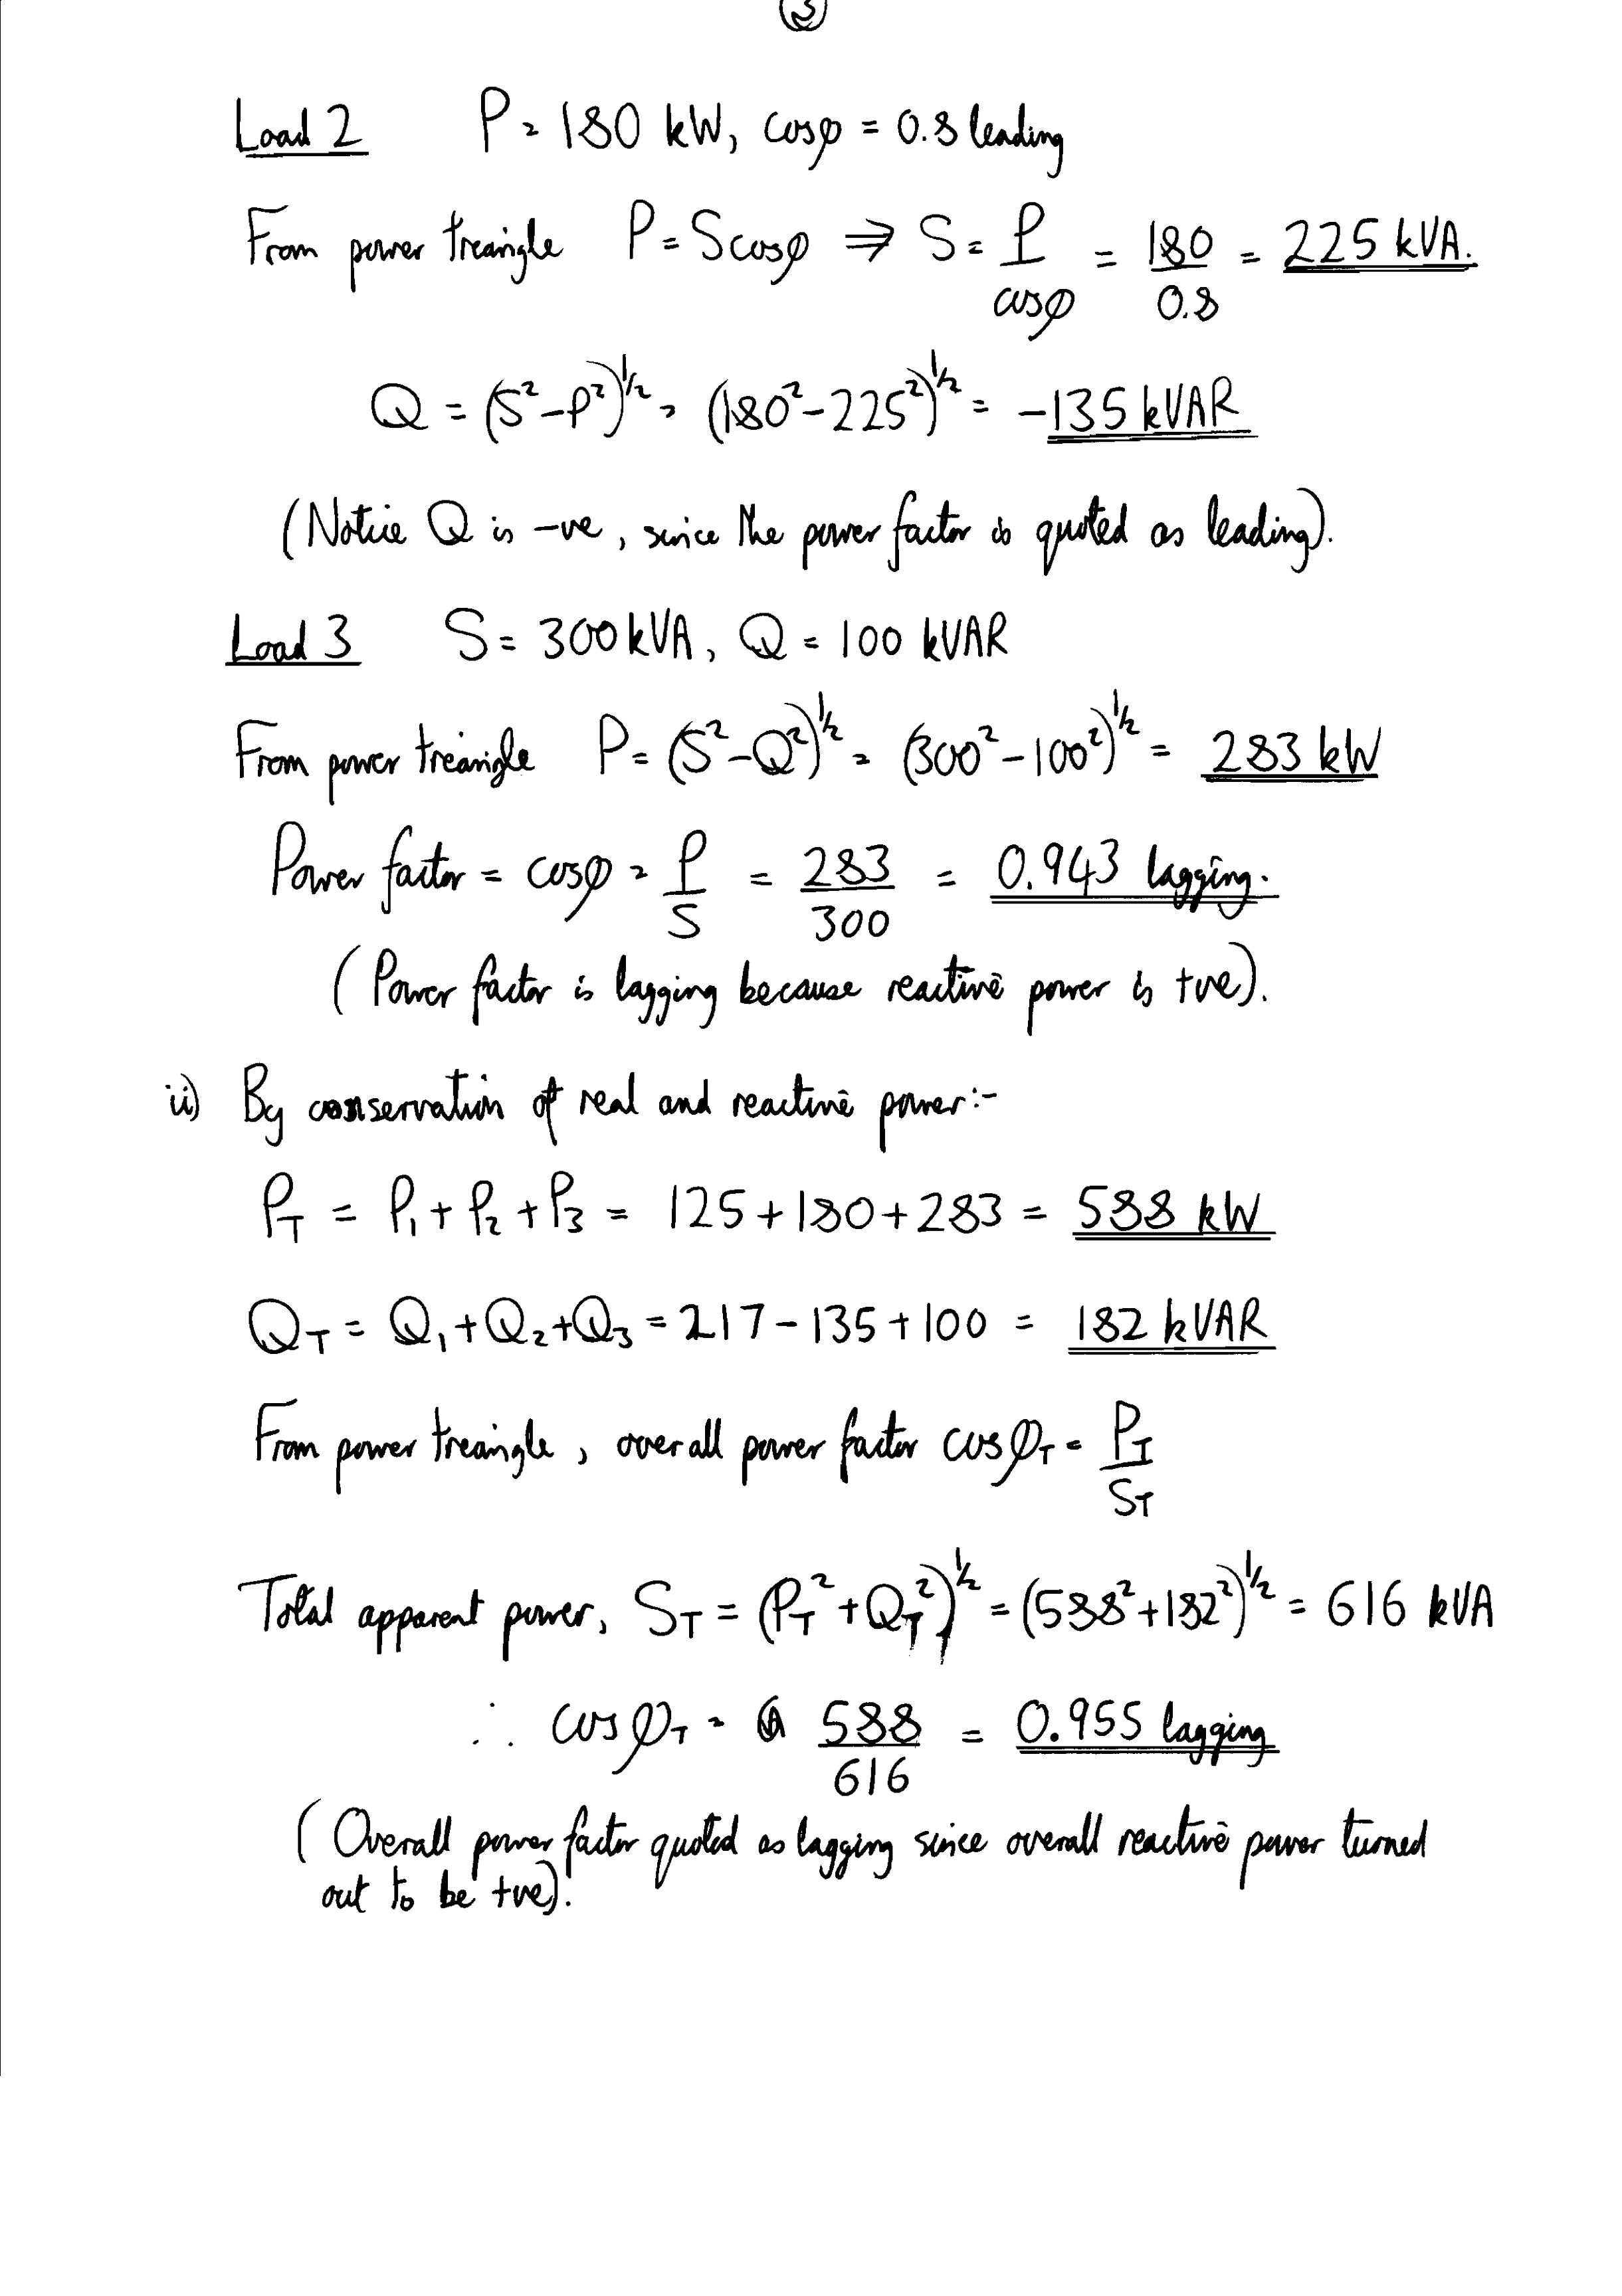 ③
Load 2 P = 180 kW, cosφ = 0.8 leading
From power triangle P = Scosφ ⇒ S = P/cosφ = 180/0.8 = 225 kVA.
Q = (S²-P²)^½ = (180²-225²)^½ = -135 kVAR
(Notice Q is -ve, since the power factor is quoted as leading).
Load 3 S = 300 kVA, Q = 100 kVAR
From power triangle P = (S²-Q²)^½ = (300²-100²)^½ = 283 kW
Power factor = cosφ = P/S = 283/300 = 0.943 lagging.
(Power factor is lagging because reactive power is +ve).
ii) By conservation of real and reactive power:-
P_T = P₁ + P₂ + P₃ = 125 + 180 + 283 = 588 kW
Q_T = Q₁ + Q₂ + Q₃ = 217 - 135 + 100 = 182 kVAR
From power triangle, overall power factor cosφ_T = P_T/S_T
Total apparent power, S_T = (P_T² + Q_T²)^½ = (588² + 182²)^½ = 616 kVA
∴ cosφ_T = 588/616 = 0.955 lagging
(Overall power factor quoted as lagging since overall reactive power turned
out to be +ve).